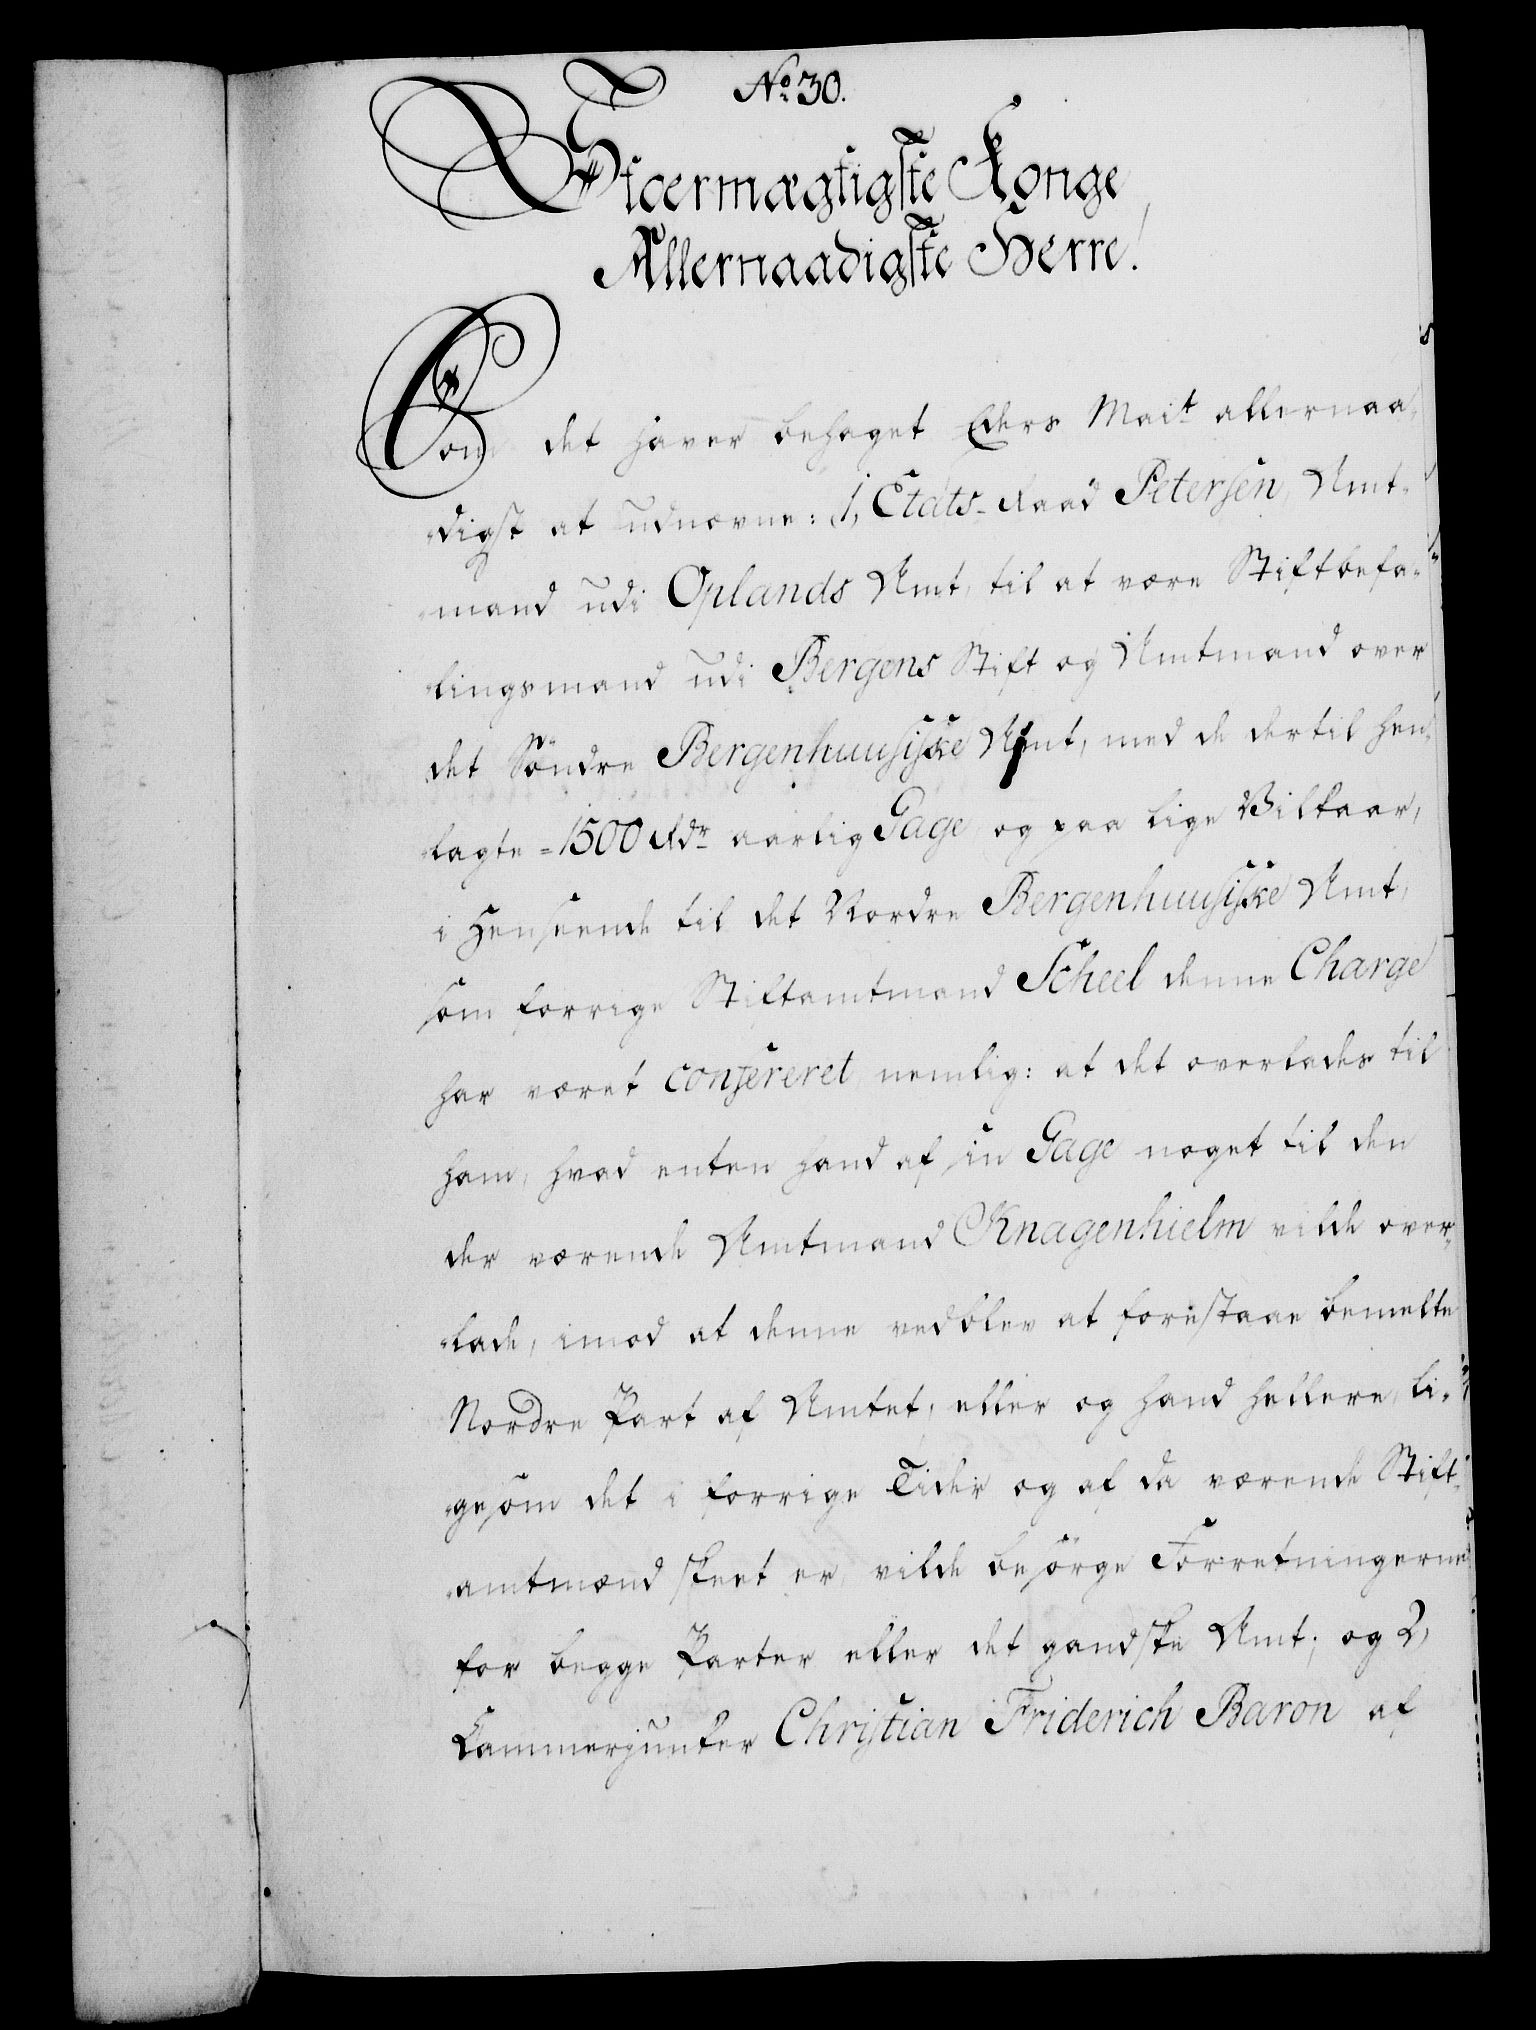 No. 30.
Stoermægtigste Konge,
Allernaadigste Herre!
Som det haver behaget Eders Mait allernaa-
digst at udnævne: 1, Etats-Raad Petersen, Amt-
mand udi Oplands Amt, til at være Stiftbefa-
lingsmand udi Bergens Stift og Amtmand over
det Søndre Bergenhuusiske Amt, med de dertil hen-
lagte = 1500 Rdr aarlig Gage, og paa lige Vilkaar,
i Henseende til det Nordre Bergenhuusiske Amt,
som forrige Stiftamtmand Scheel denne Charge
har været confereret, nemlig: at det overlades til
ham, hvad enten hand af sin Gage noget til den
der værende Amtmand Knagenhielm vilde over-
lade, imod at denne vedblev at forestaae bemelte
Nordre Part af Amtet, eller og hand hellere, li-
gesom det i forrige Tider og af da værende Stift-
amtmænd skeet er, vilde besørge Forretningerne
for begge Parter eller det gandske Amt; og 2,
Cammerjunker Christian Friderich Baron af